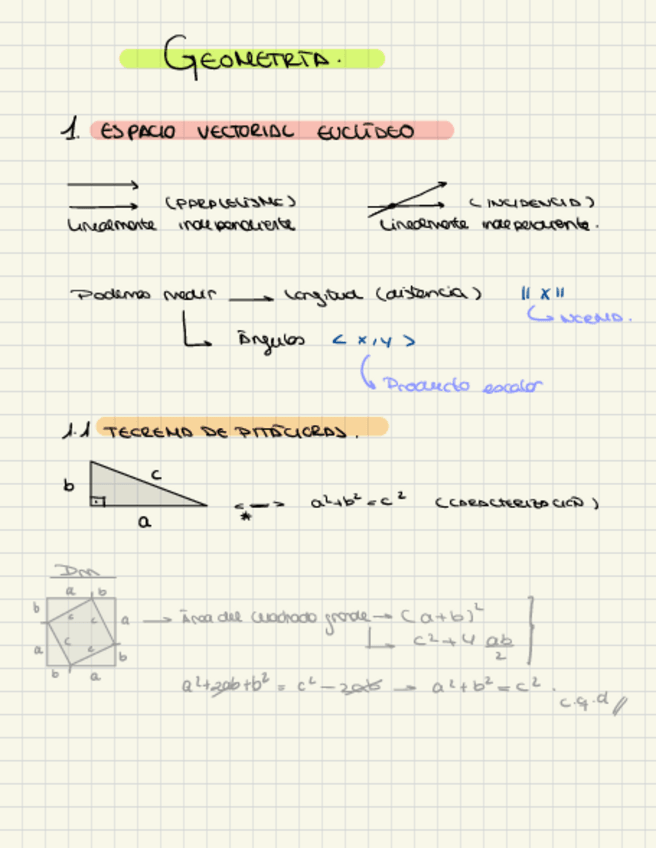 GEOMETRÍA.
1. ESPACIO VECTORIAL EUCLÍDEO
(PARALELISMO) (INCIDENCIA)
Linealmente independiente Linealmente independiente.
Podemos medir → Longitud (distancia) || x ||
↳ NORMA.
↳ Ángulos < x, y >
↳ Producto escalar
1.1 TEOREMA DE PITÁGORAS.
b c
a
<--> a²+b²=c² (CARACTERIZACIÓN)
*
Dm
a b
b c a → Área del cuadrado grande → (a+b)²
c c
a c b ↳ c²+4 ab/2
b a
a²+2ab+b² = c² - 2ab → a²+b²=c².
c.q.d //